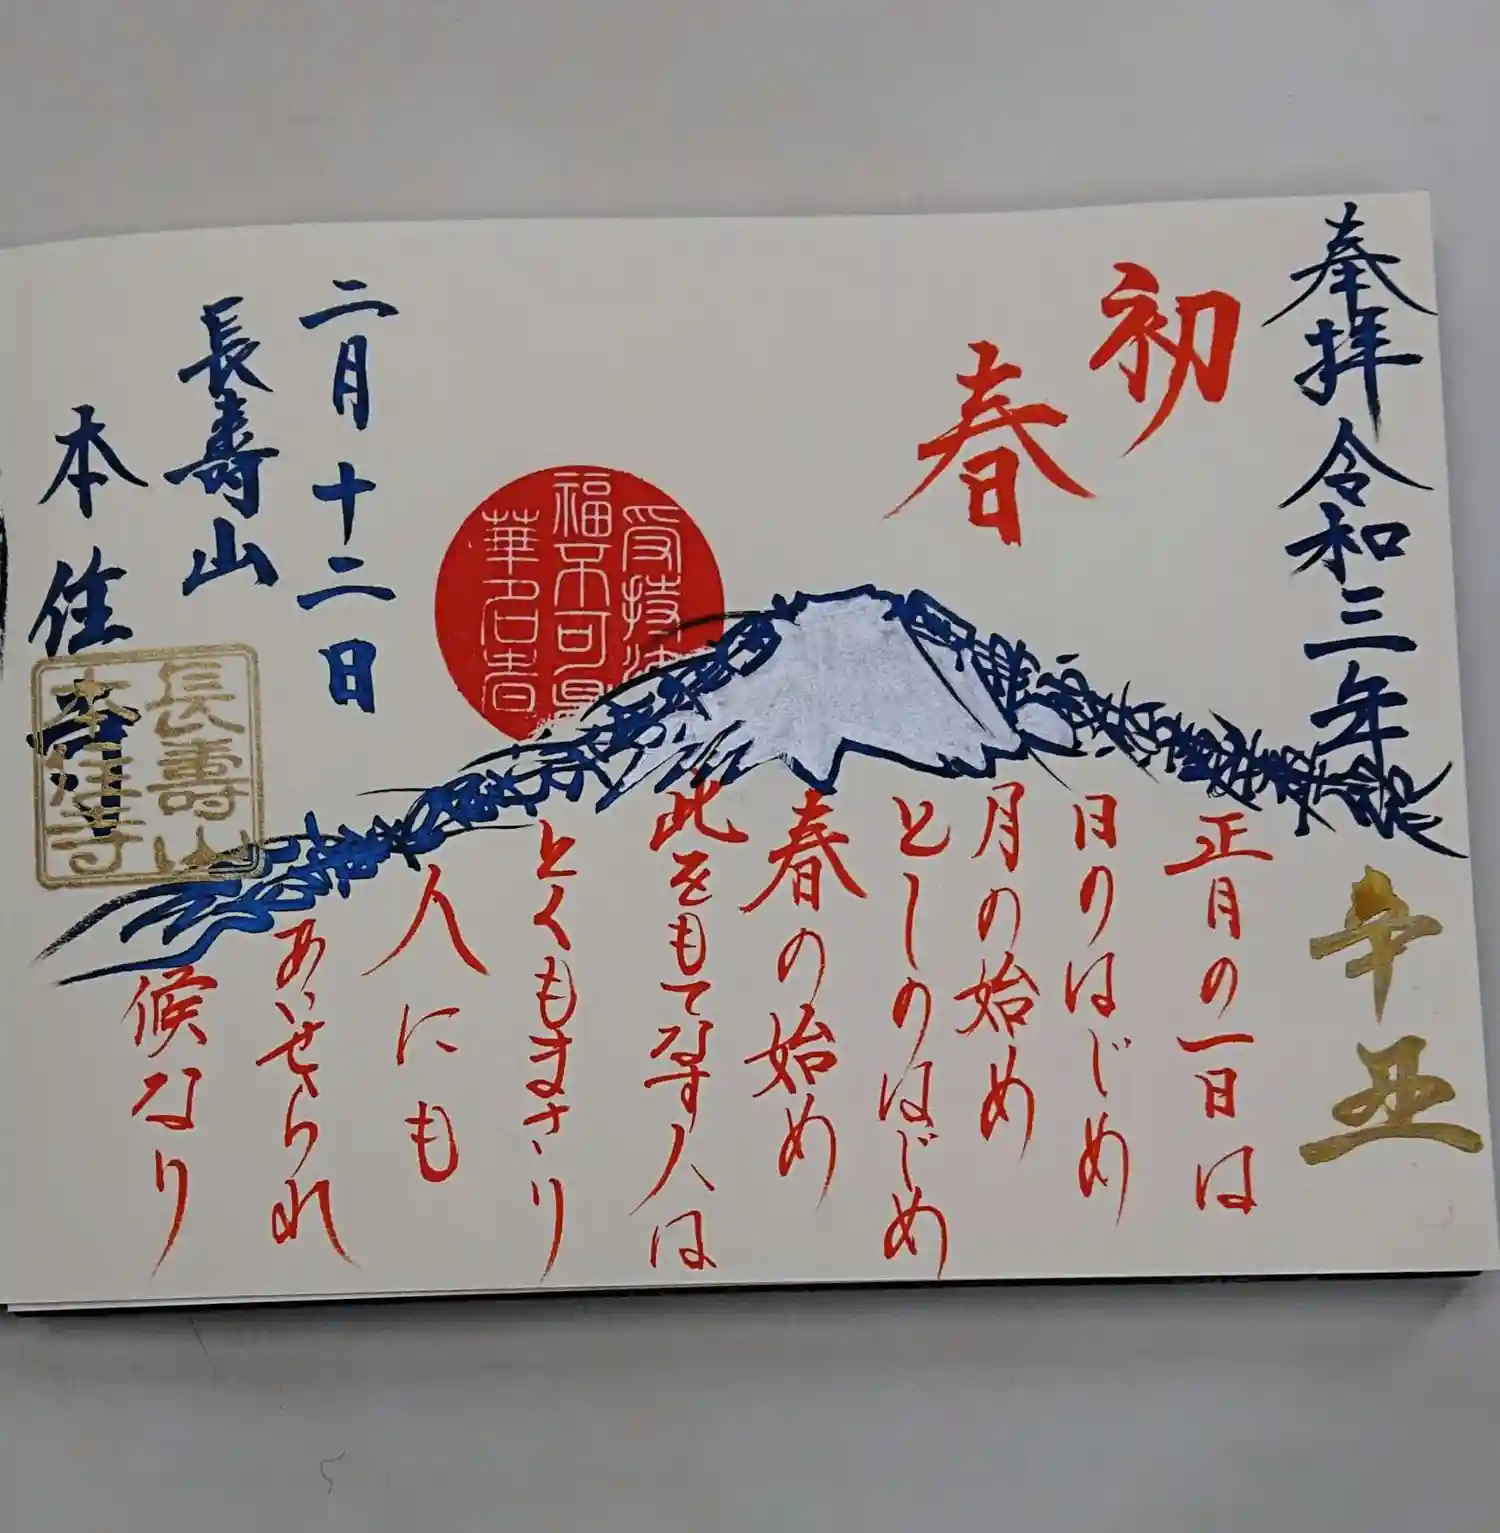 奉拝令和三年
辛丑
初
春
正月の一日は
日のはじめ
月の始め
としのはじめ
春の始め
此をもてなす人は
とくもまさり
人にも
あいせられ
候なり
受持法
福不可量
華名者
二月十二日
長壽山
本住寺
長壽山
本住寺